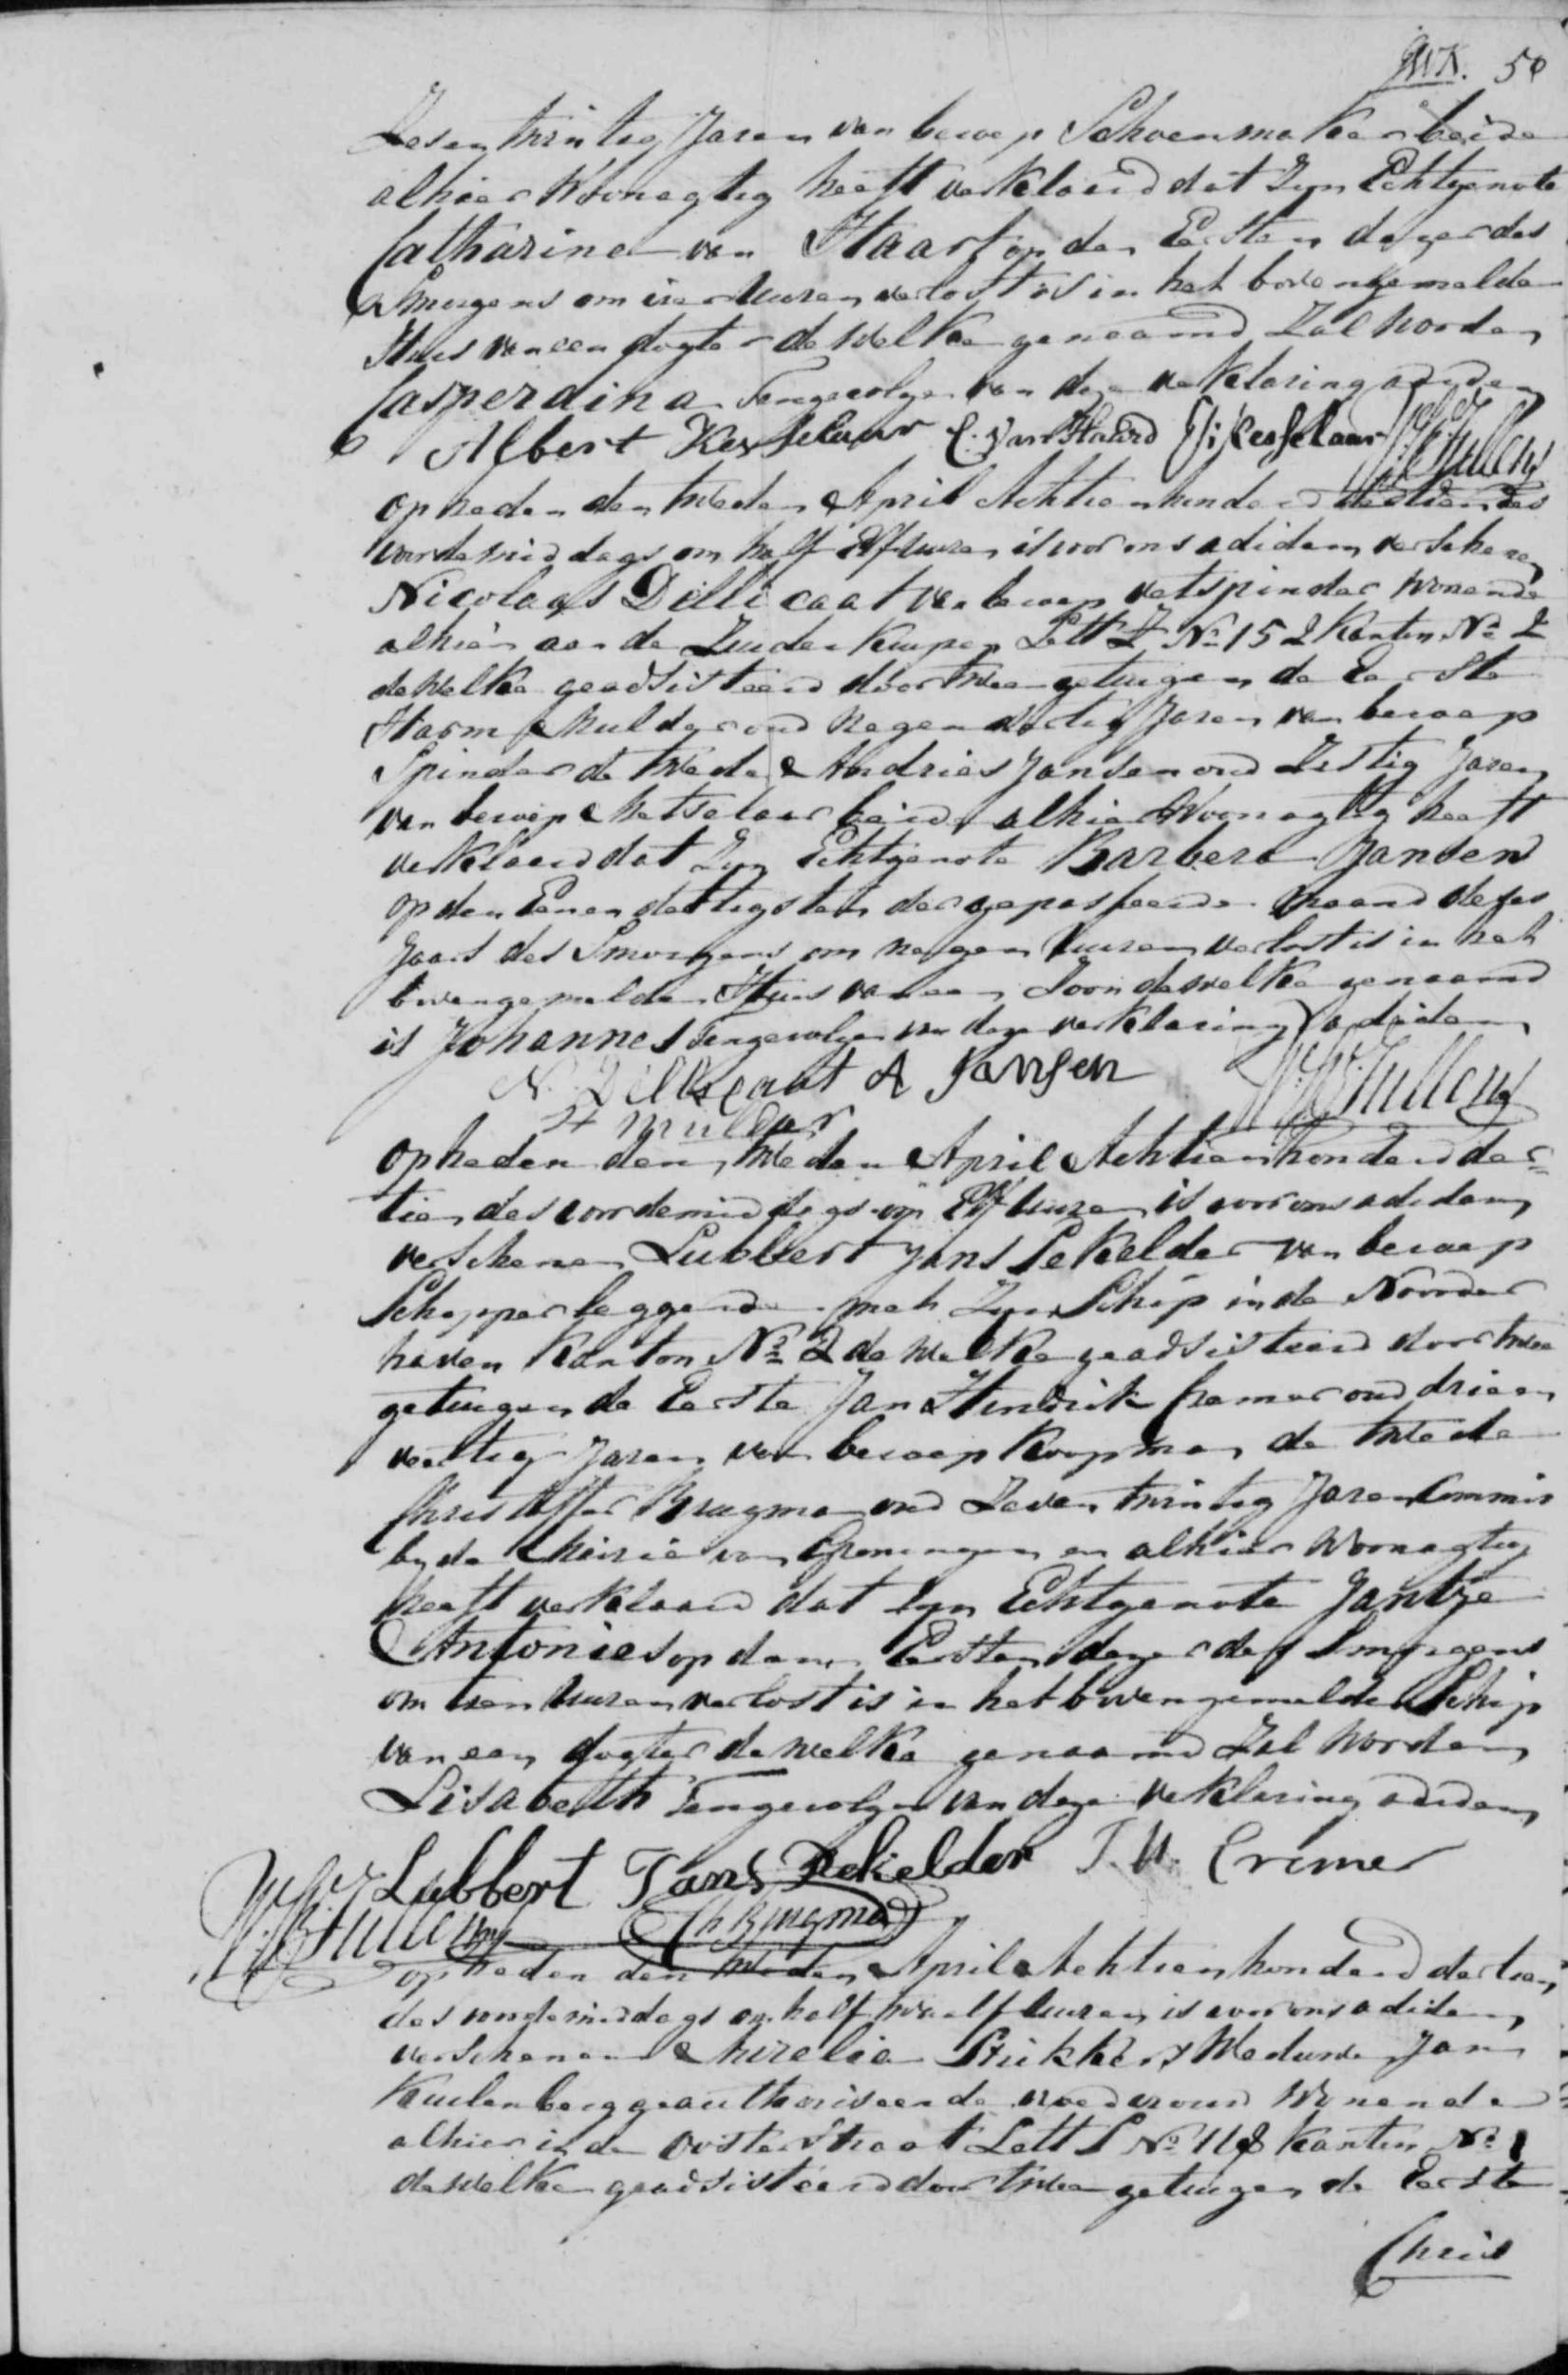 50
Sesentwintig Jaren van beroep Schoenmaker beide
alhier Woonagtig heeft verklaard dat Zyn Echtgenote
Catharina van Staart op den Eersten dezer des
Smorgens om vier Uuren verlost is in het bovengemelde
Huis van een dogter dewelke genaamd Zal worden
Casperdina Tengevolge van deze verklaring
Albert Kesselaar C. van Staard Kesselaar
op heden den tweden April Achtienhonderd dertien des
voordemiddags om half Elf uuren is voor ons adidem verschenen
Nicolaas Dillicaat van beroep vetspinder wonende
alhier aan de Zuiderkuipen Lett Z No 152 Kanton No 2
dewelke geadsisteerd door twee getuigen de Eerste
Harm Mulder oud Negendertig Jaren van beroep
Spinder de twede Andries Jansen oud Zestig Jaren
van beroep Metselaar beide alhier Woonagtig heeft
verklaard dat Zyn Echtgenote Barbera Jansen
op den Eenendertigsten der gepasseerde Maand dezes
Jaars des Smorgens om negen Uuren verlost is in het
bovengemelde Huis van een Zoon dewelke genaamd
is Johannes Tengevolge van deze verklaring adidem
N. Dillicaat A Jansen
H Mulder
op heden den tweden April Achtienhonderd der=
tien des voordemiddags om Elf uuren is voor ons adidem
verschenen Lubbert Jans Pekelder van beroep
Schipper leggende met Zyn Schip in de Noorder
haven Kanton No 2 dewelke geadsisteerd door twee
getuigen de Eerste Jan Hendrik Cremer oud drieen
veertig Jaren van beroep Koopman de twede
Christoffer Brugma oud Zeventwintig Jaren Commis
by de Mairie van Groningen en alhier Woonagtig
heeft verklaard dat Zyn Echtgenote Jantje
Antonies op den Eersten dezer des Smorgens
om tien Uuren verlost is in het bovengemelde Schip
van een dogter dewelke genaamd Zal Worden
Lisabeth Tengevolge van deze verklaring adidem
Lubbert Jans Pekielder J. H. Cremer
Ch Brugma
op heden den tweden April Achtienhonderd dertien
des voordemiddags om half twaalf Uuren is voor ons adidem
verschenen Aurelia Stikkers Weduwe Jan
Kuilenberg geauthoriseerde vroedvrouw Wonende
alhier in de Oosterstraat Lett L No 118 Kanton No 1
dewelke geadsisteerd door twee getuigen de Eerste
Chris